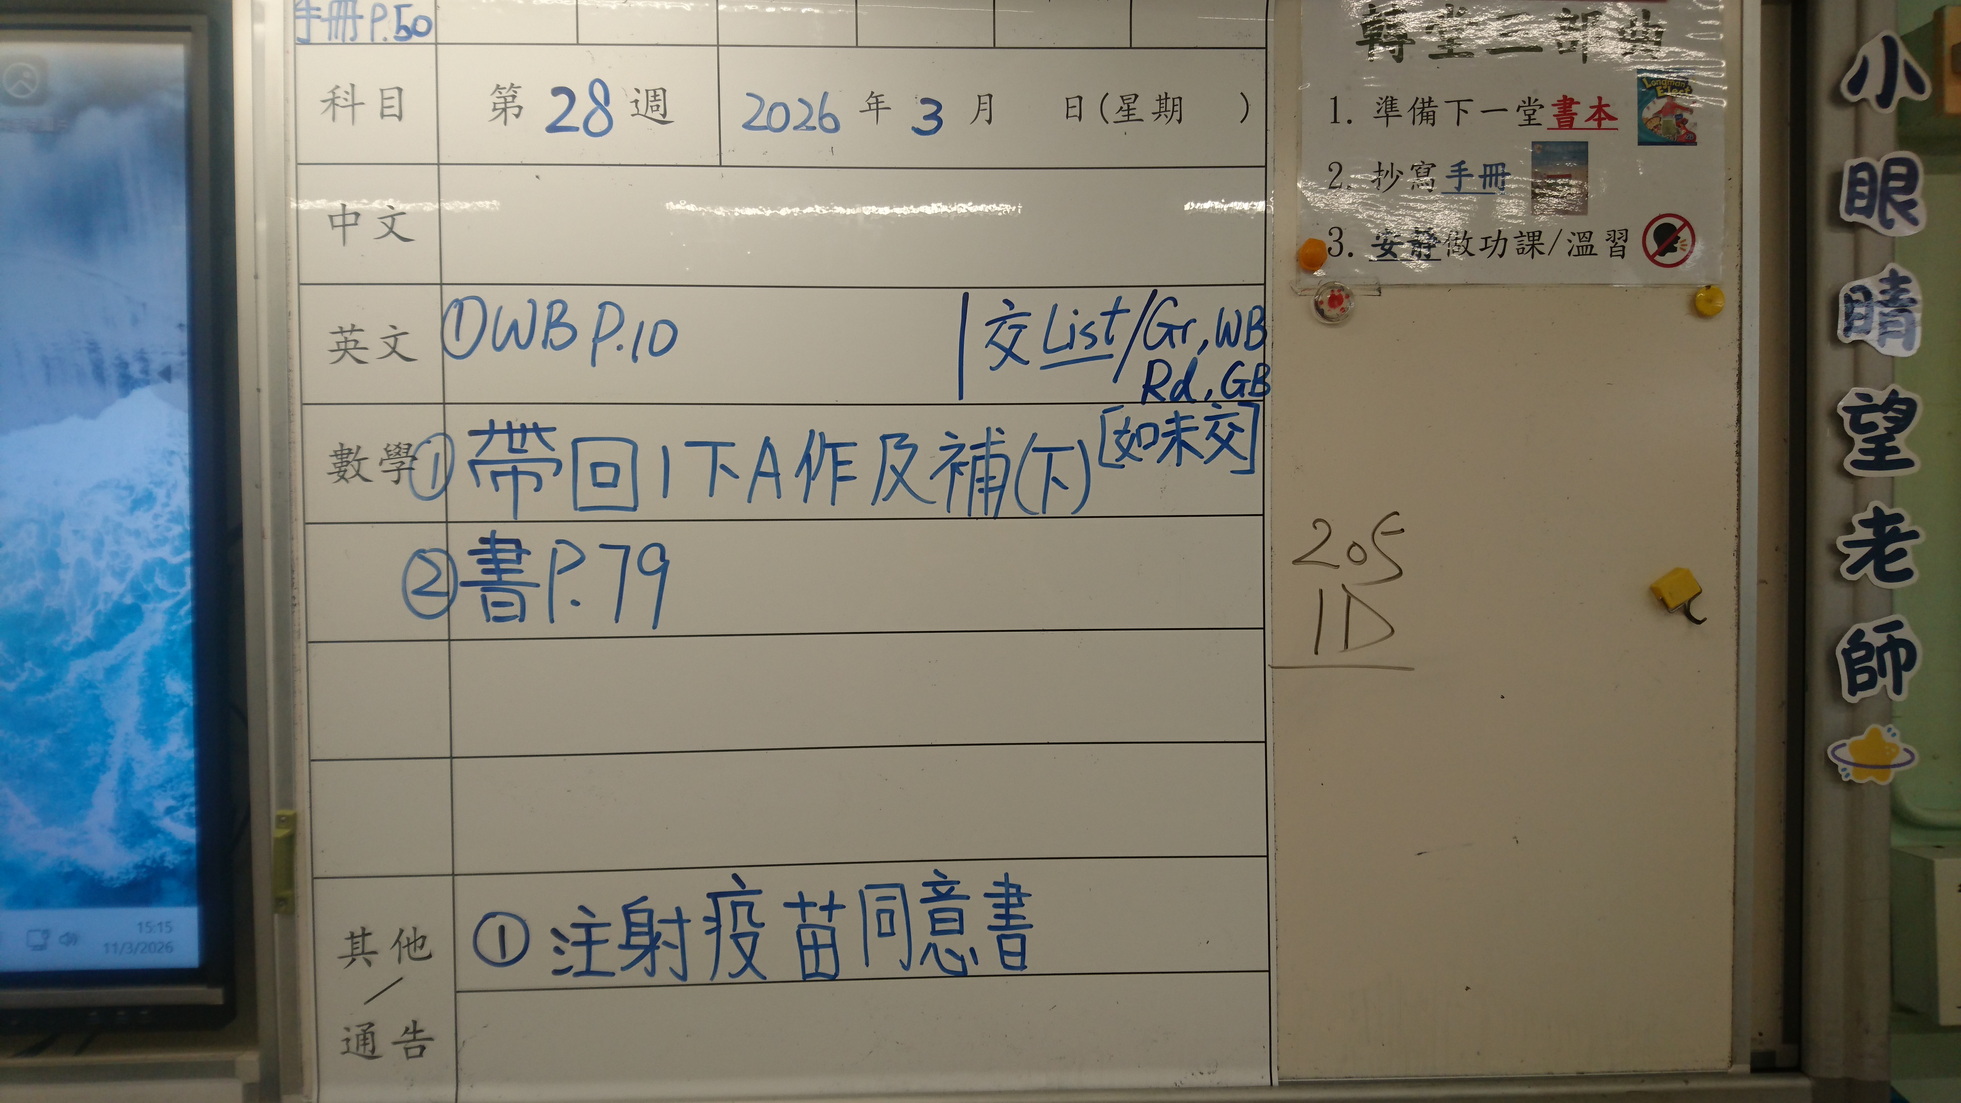 手冊 P.50
科目 第 28 週 2026 年 3 月 日(星期 )
中文
英文 ①WB P.10 | 交 List/Gr, WB
Rd, GB
數學 ① 帶回1下A作及補(下) [如未交]
② 書P.79
其他／通告 ① 注射疫苗同意書
轉堂三部曲
1. 準備下一堂書本
2. 抄寫手冊
3. 安靜做功課/溫習
205
1D
小眼睛望老師
15:15
11/3/2026